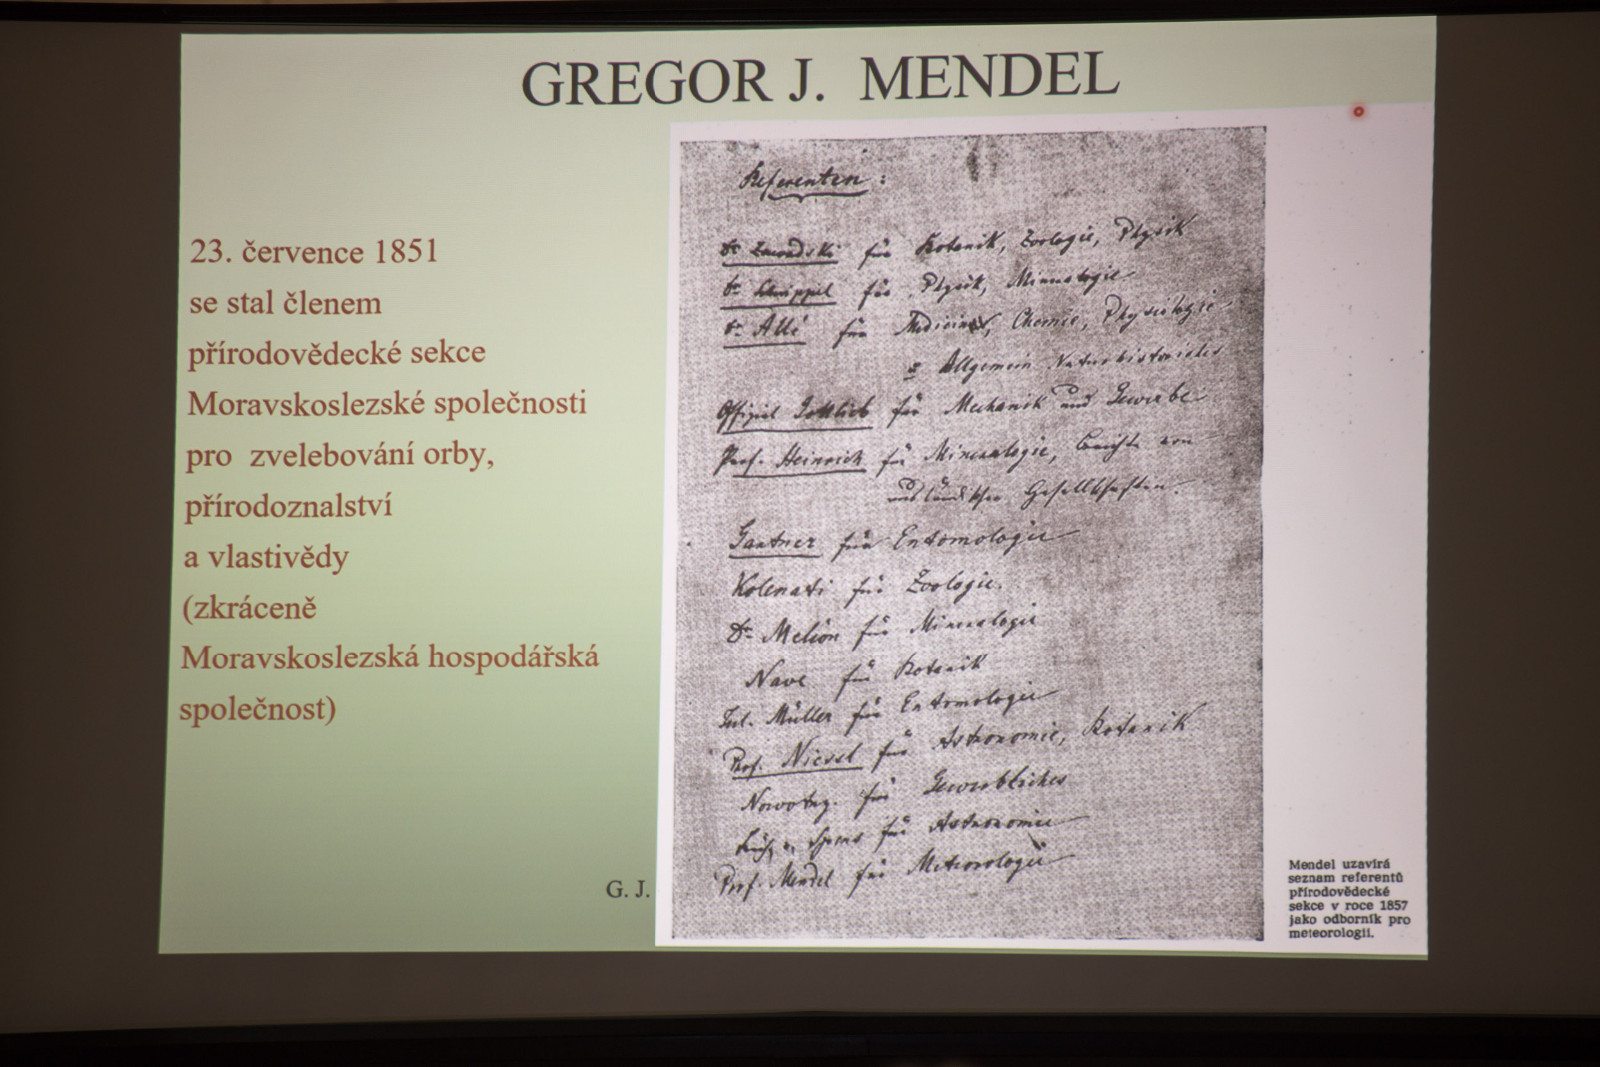 GREGOR J. MENDEL
23. července 1851
se stal členem
přírodovědecké sekce
Moravskoslezské společnosti
pro zvelebování orby,
přírodoznalství
a vlastivědy
(zkráceně
Moravskoslezská hospodářská
společnost)
G. J.
Referenten :
Dr Zawadski für Botanik, Zoologie, Physik
Dr für Physik, Mineralogie
Dr Allé für Medicin, Chemie, Physiologie
Allgemein Naturhistorisches
Offizial Gottlieb für Mechanik und Gewerbe
Prof. Heinrich für Mineralogie, Berichte von
ausländischen Gesellschaften.
Gartner für Entomologie
Kolenati für Zoologie.
Dr Melion für Mineralogie
Nave für Botanik
Jul. Müller für Entomologie
Prof. Niessl für Astronomie, Botanik
Nowotny. für Gewerbliches
v. Spens für Astronomie
Prof. Mendel für Meteorologie
Mendel uzavírá
seznam referentů
přírodovědecké
sekce v roce 1857
jako odborník pro
meteorologii.